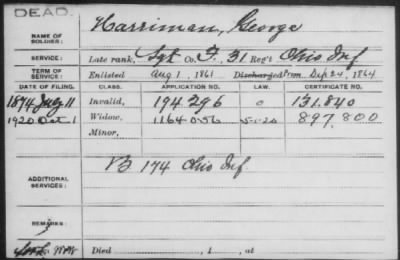 DEAD.
NAME OF SOLDIER: Harriman, George
SERVICE: Late rank, Sgt Co. F, 31 Reg't Ohio Inf
TERM OF SERVICE: Enlisted Aug 1, 1861 Discharged Prom. Sep 24, 1864
DATE OF FILING. CLASS. APPLICATION NO. LAW. CERTIFICATE NO.
1874 July 11 Invalid, 194.296 o 131.840
1920 Oct 1 Widow, 1164056 5-1-20 897,800
Minor,
ADDITIONAL SERVICES: B 174 Ohio Inf.
REMARKS:
Died , 1 , at